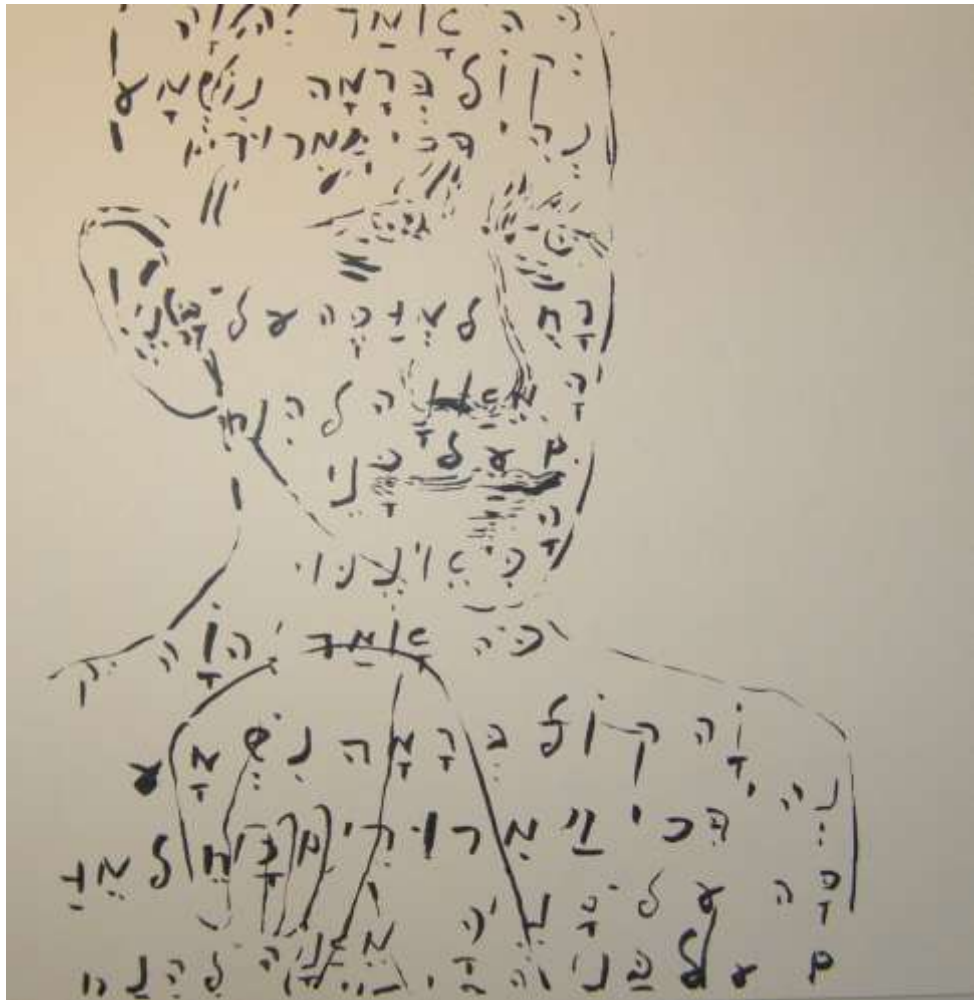 כה אָמַר יהוָה
קוֹל בְּרָמָה נִשְׁמָע
נְהִי בְּכִי תַמְרוּרִים
רָחֵל מְבַכָּה עַל בָּנֶי
הָ מֵאֲנָה לְהִנָּחֵ
ם עַל בָּנֶי
הָ
כִּי אֵינֶנּוּ
כֹּה אָמַר יהוָה
קוֹל בְּרָמָה נִשְׁמָע
נְהִי בְּכִי תַמְרוּרִים רָחֵל מְבַ
כָּה עַל בָּנֶיהָ
ם עַל בָּנֶיהָ